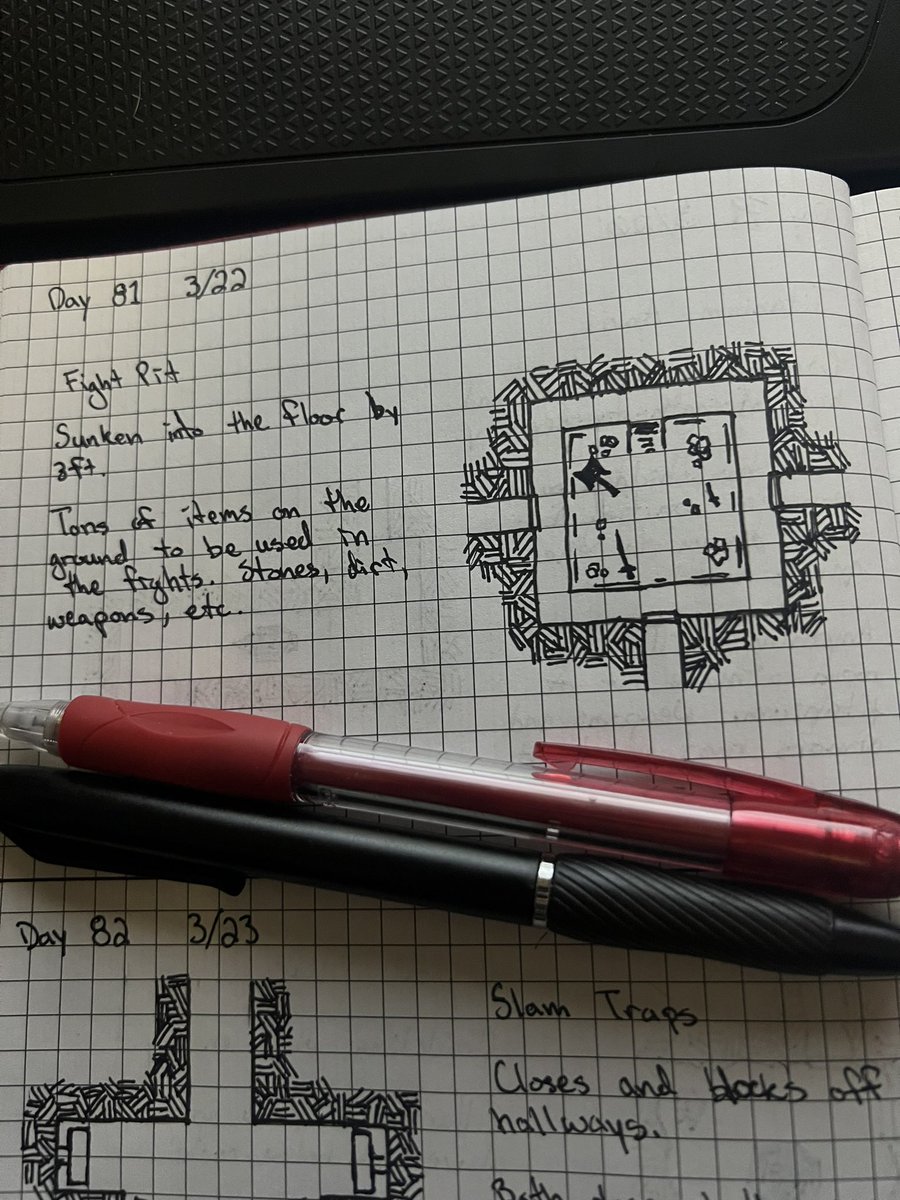 Day 81 3/22
Fight Pit
Sunken into the floor by
3ft.
Tons of items on the
ground to be used in
the fights. Stones, dirt,
weapons, etc.
Day 82 3/23
Slam Traps
Closes and blocks off
hallways.
Both